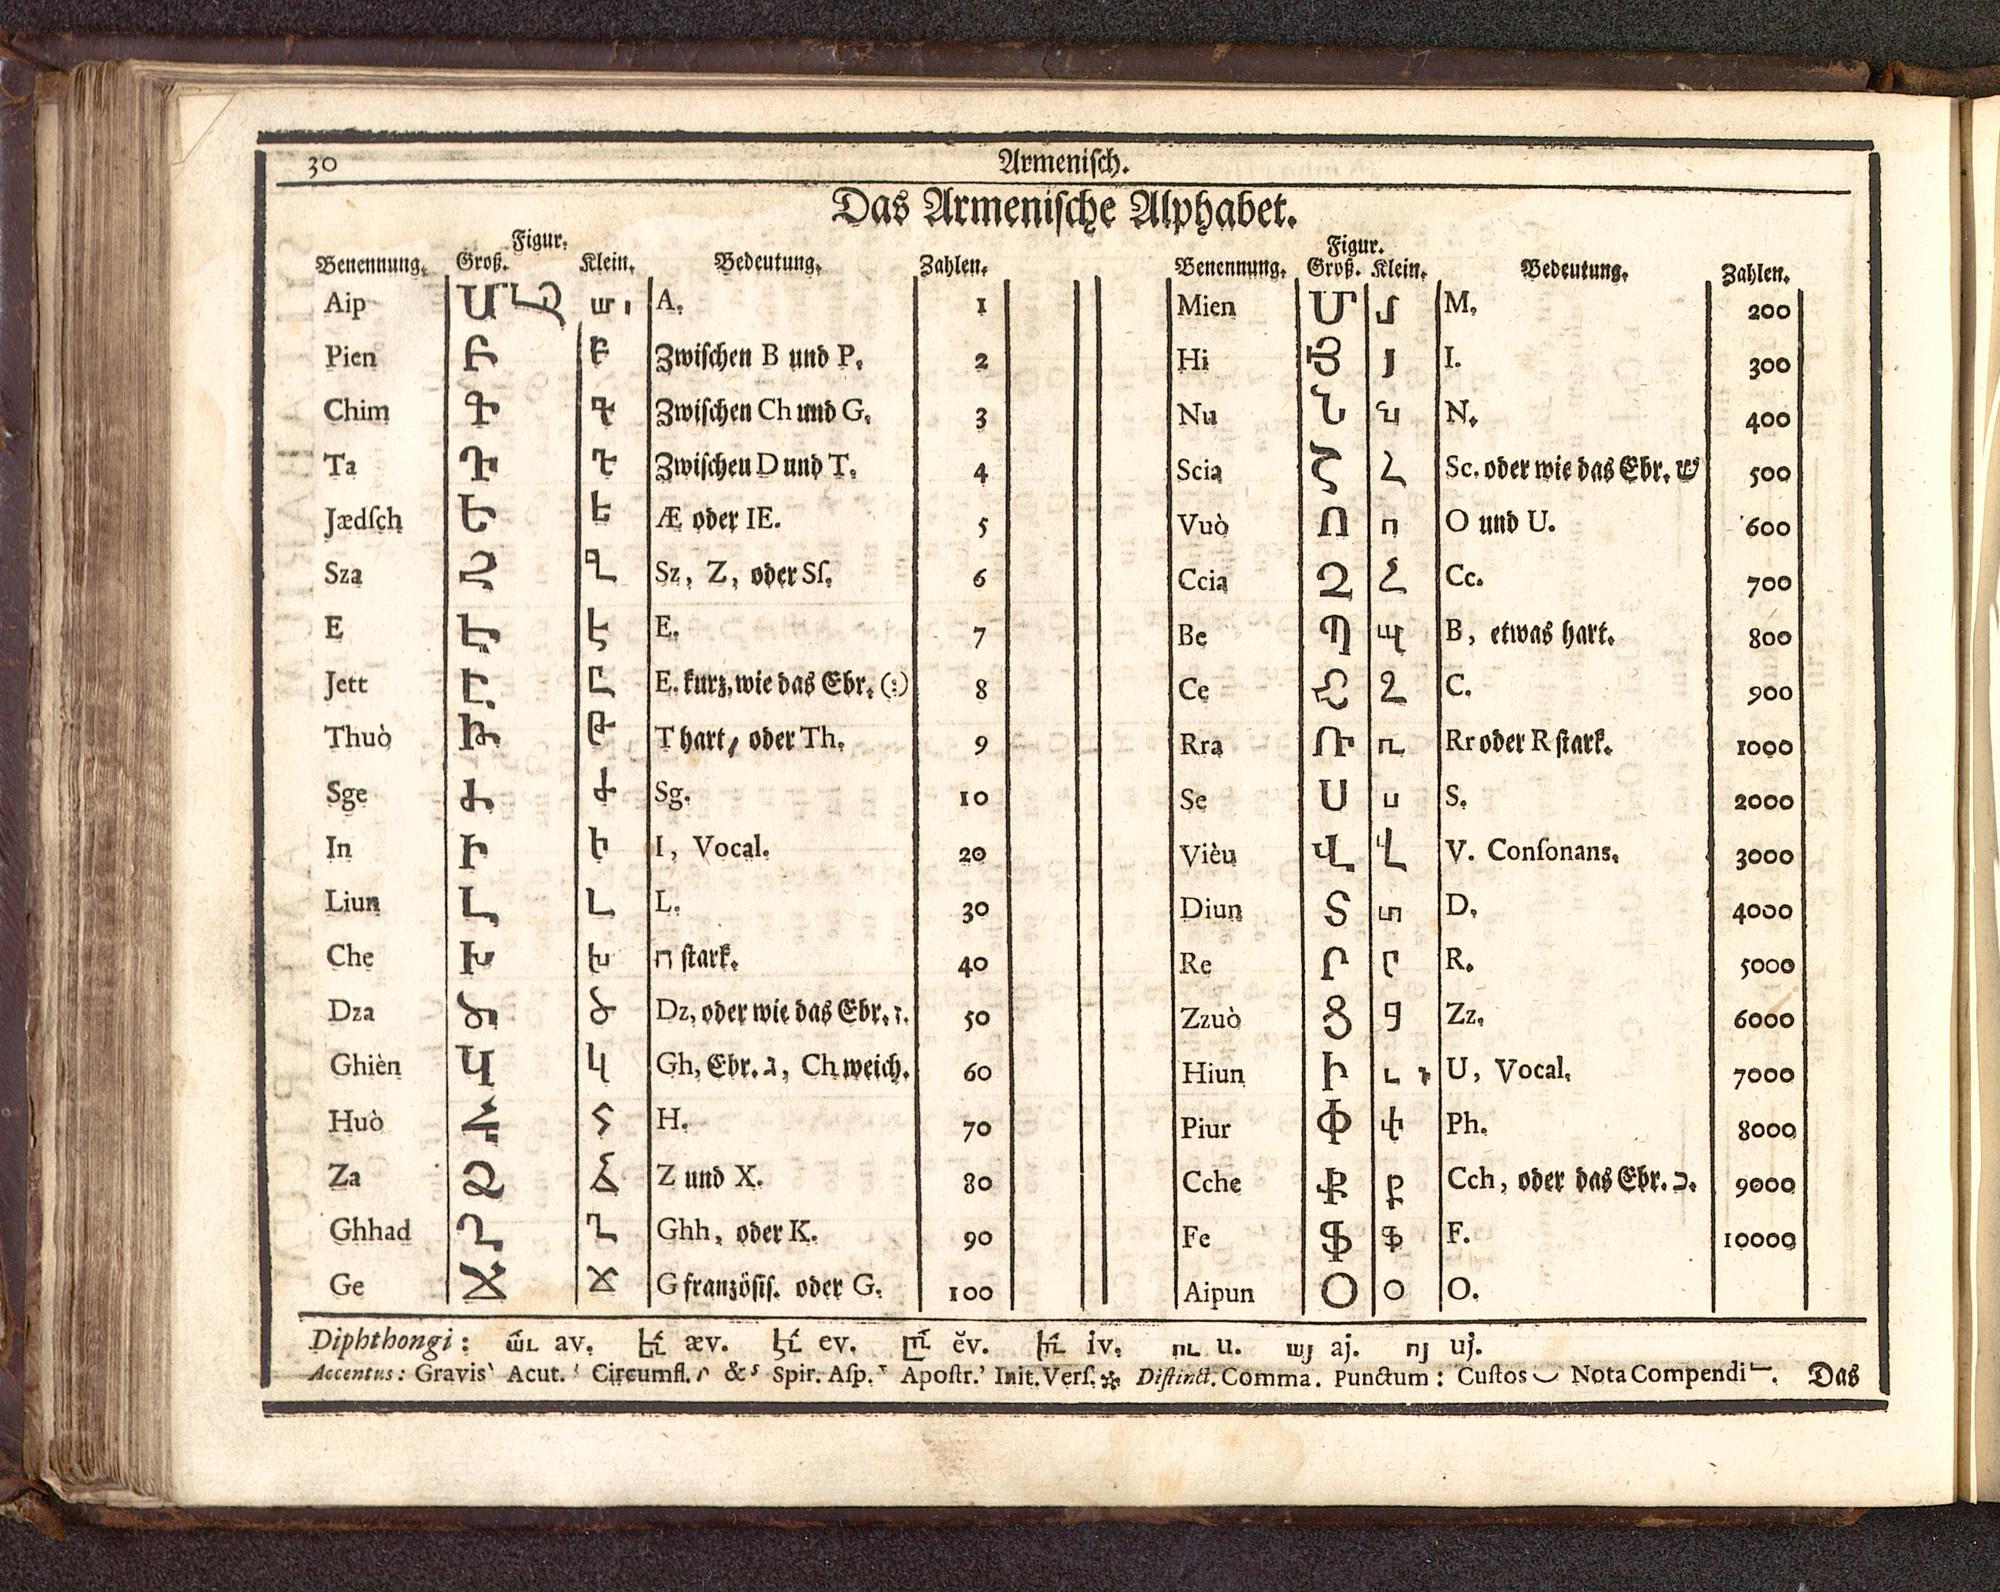 30 Armeniſch.
Das Armeniſche Alphabet.
Figur. Figur.
Benennung. Groß. Klein. Bedeutung. Zahlen. Benennung. Groß. Klein. Bedeutung. Zahlen.
Aip Ա ա A. 1 Mien Մ մ M. 200
Pien Բ բ Zwiſchen B und P. 2 Hi Յ յ I. 300
Chim Գ գ Zwiſchen Ch und G. 3 Nu Ն ն N. 400
Ta Դ դ Zwiſchen D und T. 4 Scia Շ շ Sc. oder wie das Ebr. ש 500
Jædſch Ե ե Æ oder IE. 5 Vuò Ո ո O und U. 600
Sza Զ զ Sz, Z, oder Sſ. 6 Ccia Չ չ Cc. 700
E Է է E. 7 Be Պ պ B, etwas hart. 800
Jett Ը ը E. kurz, wie das Ebr. (:) 8 Ce Ջ ջ C. 900
Thuò Թ թ T hart, oder Th. 9 Rra Ռ ռ Rr oder R ſtark. 1000
Sge Ժ ժ Sg. 10 Se Ս ս S. 2000
In Ի ի I, Vocal. 20 Vièu Վ վ V. Conſonans. 3000
Liun Լ լ L. 30 Diun Տ տ D. 4000
Che Խ խ ח ſtark. 40 Re Ր ր R. 5000
Dza Ծ ծ Dz, oder wie das Ebr. ז. 50 Zzuò Ց ց Zz. 6000
Ghièn Կ կ Gh, Ebr. ג, Ch weich. 60 Hiun Ւ ւ U, Vocal. 7000
Huò Հ հ H. 70 Piur Փ փ Ph. 8000
Za Ձ ձ Z und X. 80 Cche Ք ք Cch, oder das Ebr. כ. 9000
Ghhad Ղ ղ Ghh, oder K. 90 Fe Ֆ ֆ F. 10000
Ge Ճ ճ G franzöſiſ. oder G. 100 Aipun Օ օ O.
Diphthongi: աւ av. եւ æv. էւ ev. ըւ ĕv. իւ iv. ու u. այ aj. ոյ uj.
Accentus: Gravis Acut. Circumfl. & Spir. Aſp. Apoſtr.’ Init. Verſ. Diſtinct. Comma . Punctum : Cuſtos Nota Compendi . Das